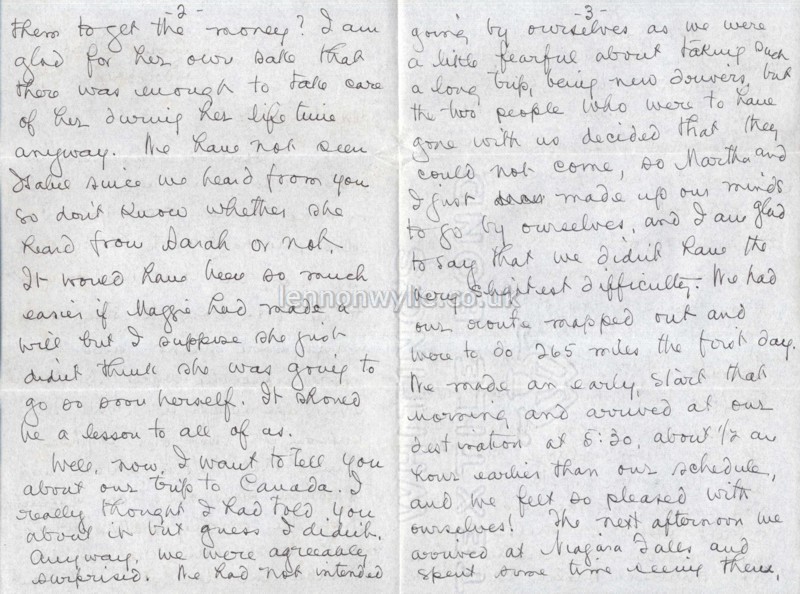 -2-
them to get the money? I am
glad for her own sake that
there was enough to take care
of her during her life time
anyway. We have not seen
since we heard from you
so don't know whether she
heard from Sarah or not.
It would have been so much
easier if Maggie had made a
will but I suppose she just
didn't think she was going to
go so soon herself. It should
be a lesson to all of us.
Well, now, I want to tell you
about our trip to Canada. I
really thought I had told you
about it but guess I didn't.
Anyway, we were agreeably
surprised. We had not intended
-3-
going by ourselves as we were
a little fearful about taking such
a long trip, being new drivers, but
the two people who were to have
gone with us decided that they
could not come, so Martha and
I just made up our minds
to go by ourselves, and I am glad
to say that we didn't have the
very slightest difficulty. We had
our route mapped out and
were to do 265 miles the first day.
We made an early start that
morning and arrived at our
destination at 5:30, about 1/2 an
hour earlier than our schedule,
and we felt so pleased with
ourselves! The next afternoon we
arrived at Niagara Falls and
spent some time seeing them,
lennonwylie.co.uk